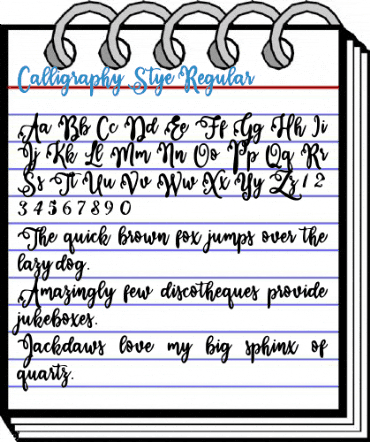 Calligraphy Stye Regular
Aa Bb Cc Dd Ee Ff Gg Hh Ii
Jj Kk Ll Mm Nn Oo Pp Qq Rr
Ss Tt Uu Vv Ww Xx Yy Zz 1 2
3 4 5 6 7 8 9 0
The quick brown fox jumps over the
lazy dog.
Amazingly few discotheques provide
jukeboxes.
Jackdaws love my big sphinx of
quartz.